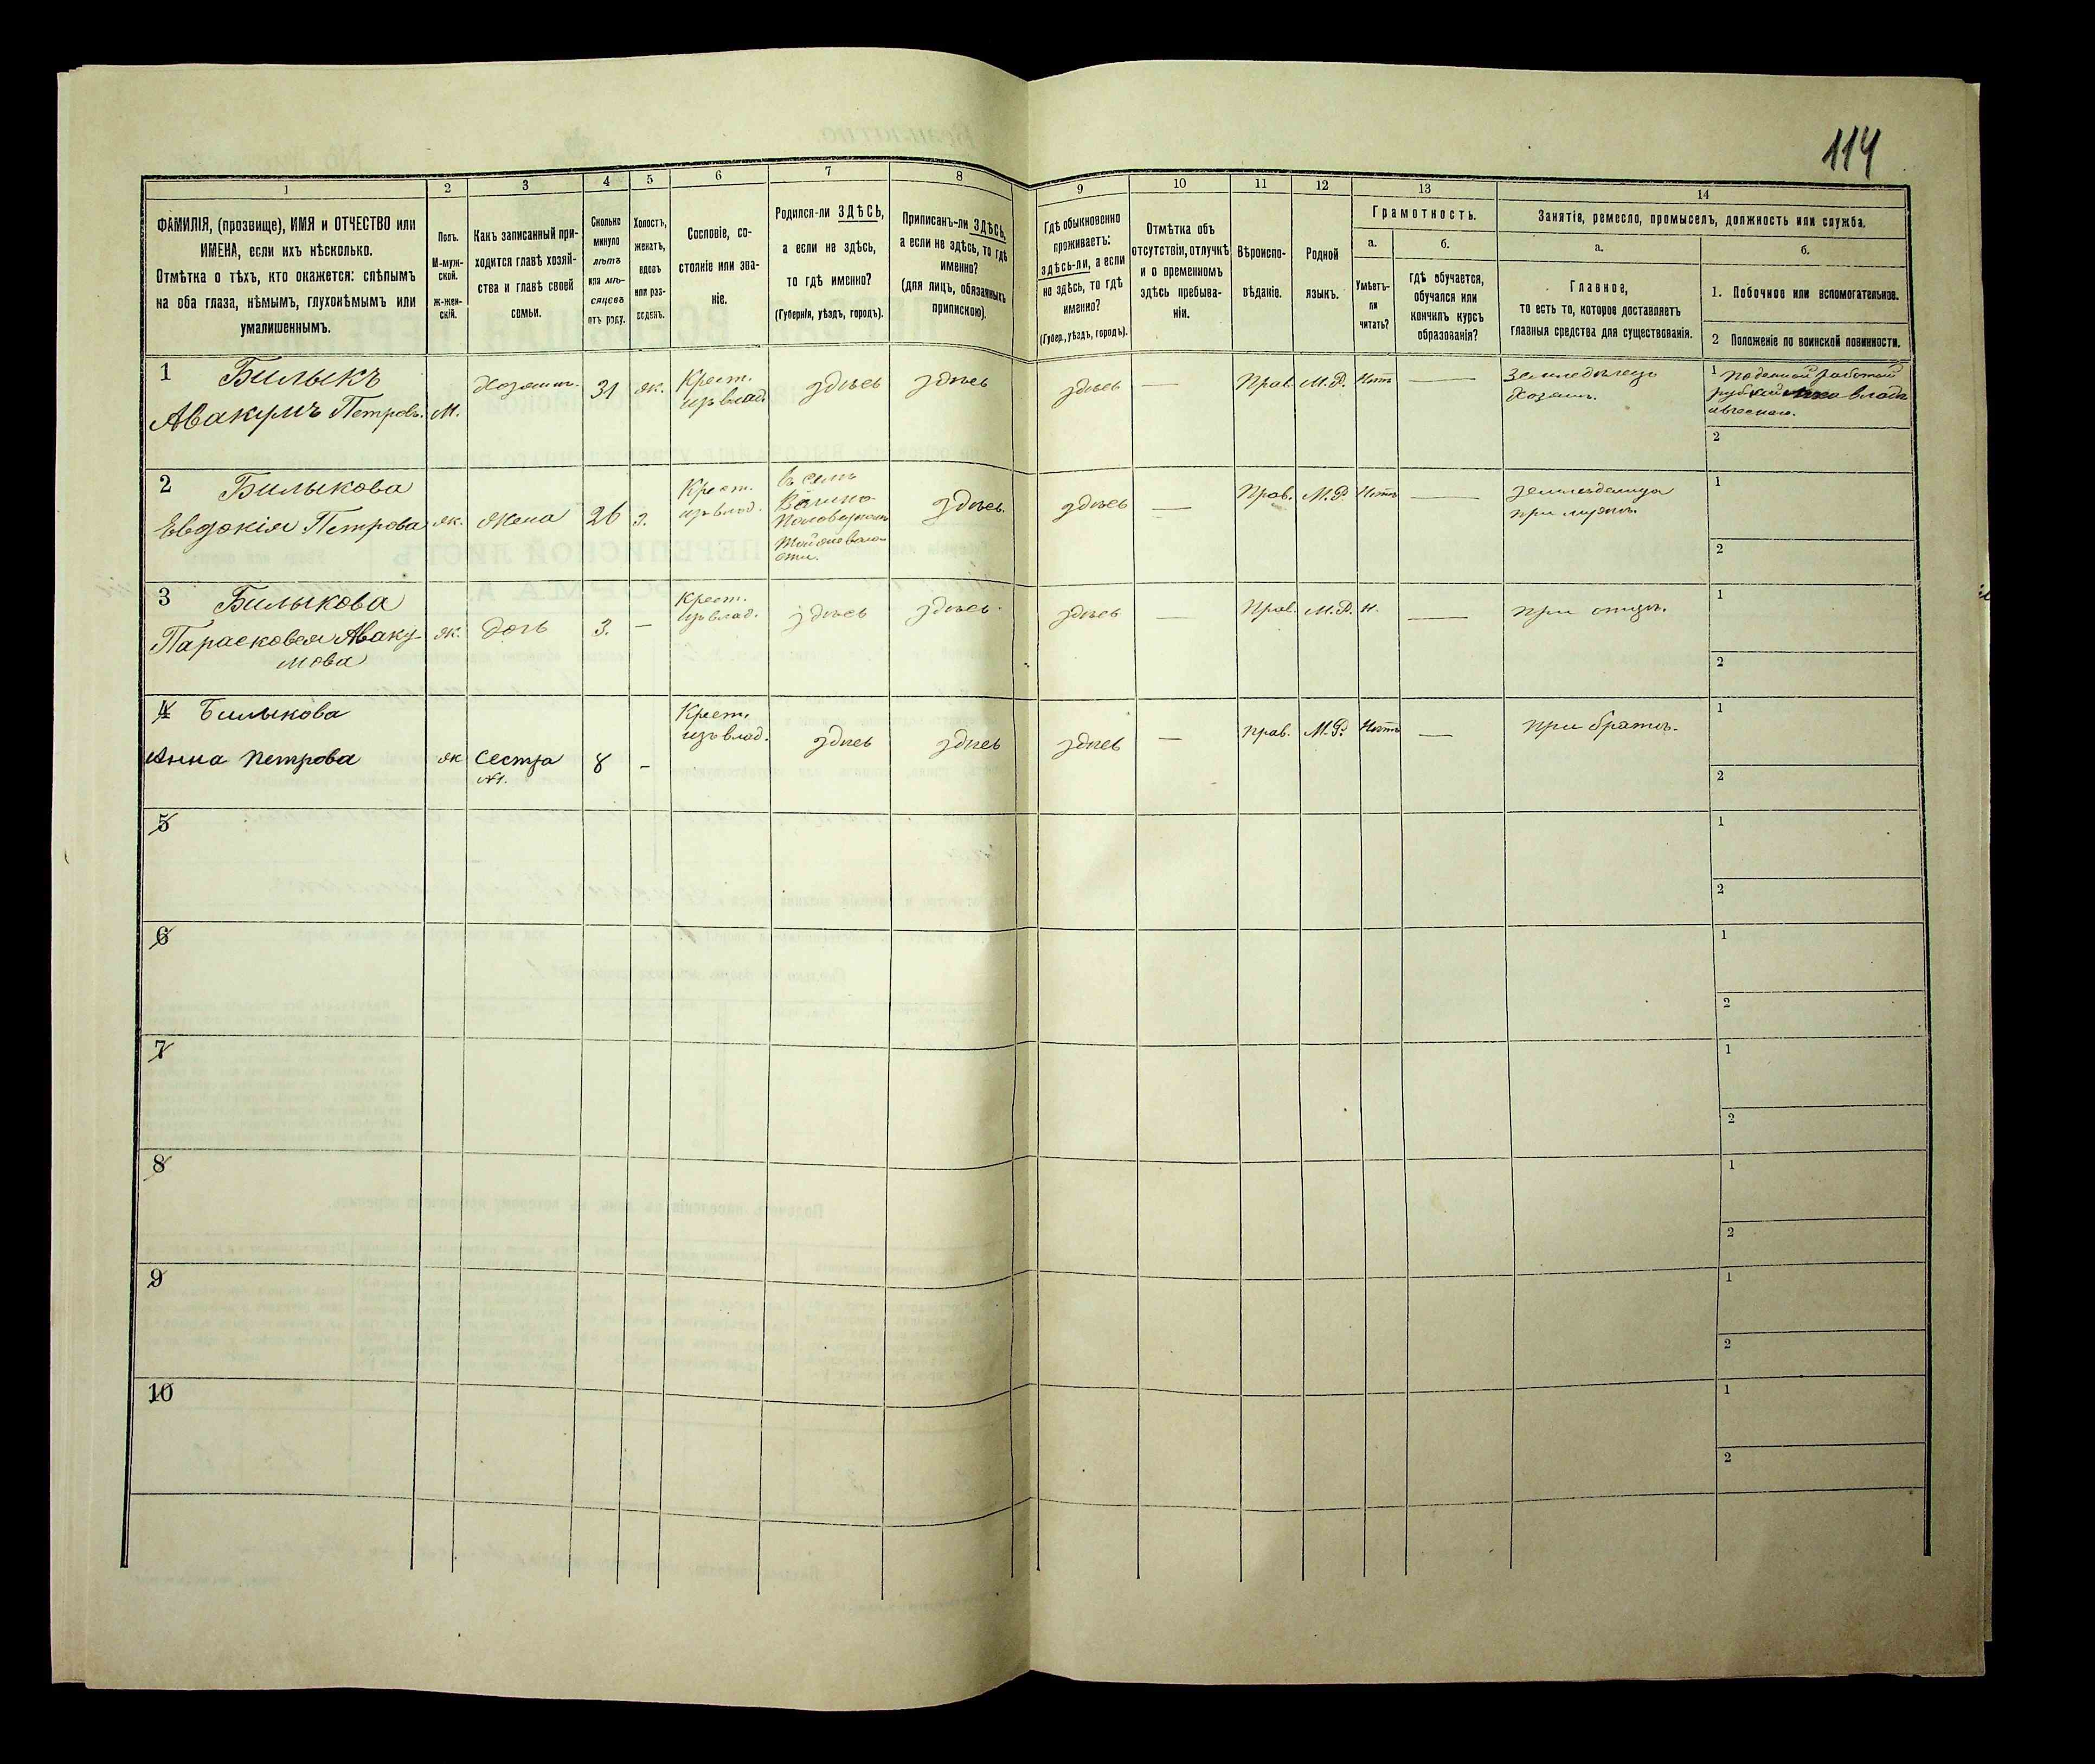 114
1
2
3
4
5
6
7
8
9
10
11
12
13
14
ФАМИЛІЯ, (прозвище), ИМЯ и ОТЧЕСТВО или
ИМЕНА, если ихъ нѣсколько.
Отмѣтка о тѣхъ, кто окажется: слѣпымъ
на оба глаза, нѣмымъ, глухонѣмымъ или
умалишеннымъ.
Полъ.
М-муж-
ской.
ж-жен-
скій.
Какъ записанный при-
ходится главѣ хозяй-
ства и главѣ своей
семьи.
Сколько
минуло
лѣтъ
или мѣ-
сяцевъ
отъ роду.
Холостъ,
женатъ,
вдовъ
или раз-
веденъ.
Сословіе, со-
стояніе или зва-
ніе.
Родился-ли ЗДѢСЬ,
а если не здѣсь,
то гдѣ именно?
(Губернія, уѣздъ, городъ).
Приписанъ-ли ЗДѢСЬ,
а если не здѣсь, то гдѣ
именно?
(для лицъ, обязанныхъ
припискою).
Гдѣ обыкновенно
проживаетъ:
здѣсь-ли, а если
не здѣсь, то гдѣ
именно?
(Губер., уѣздъ, городъ).
Отмѣтка объ
отсутствіи, отлучкѣ
и о временномъ
здѣсь пребыва-
ніи.
Вѣроиспо-
вѣданіе.
Родной
языкъ.
Грамотность.
а.
б.
Умѣетъ-
ли
читать?
гдѣ обучается,
обучался или
кончилъ курсъ
образованія?
Занятіе, ремесло, промыселъ, должность или служба.
а.
б.
Главное,
то есть то, которое доставляетъ
главныя средства для существованія.
1. Побочное или вспомогательное.
2 Положеніе по воинской повинности.
1 Билыкъ
Авакумъ Петровъ.
М.
Хозяинъ.
31
Ж.
Крест.
изъ влад.
здѣсь
здѣсь
здѣсь
—
Прав.
М.Р.
Нѣтъ
—
Земледѣлецъ
Хозяинъ.
1 Поденной работой
2
2 Билыкова
Евдокія Петрова
ж.
жена
26
з.
Крест.
изъ влад.
въ селѣ
здѣсь.
здѣсь
—
Прав.
М.Р.
Нѣтъ
—
при мужѣ.
1
2
3 Билыкова
Парасковея Аваку-
мова
ж.
дочь
3.
—
Крест.
изъ влад.
здѣсь
здѣсь.
здѣсь
—
Прав.
М.Р.
Н.
—
при отцѣ.
1
2
4 Билыкова
Анна Петрова
ж
Сестра
№1.
8
-
Крест.
изъ влад.
здѣсь
здѣсь
здѣсь
—
прав.
М.Р.
Нѣтъ
—
при братѣ.
1
2
5
1
2
6
1
2
7
1
2
8
1
2
9
1
2
10
1
2